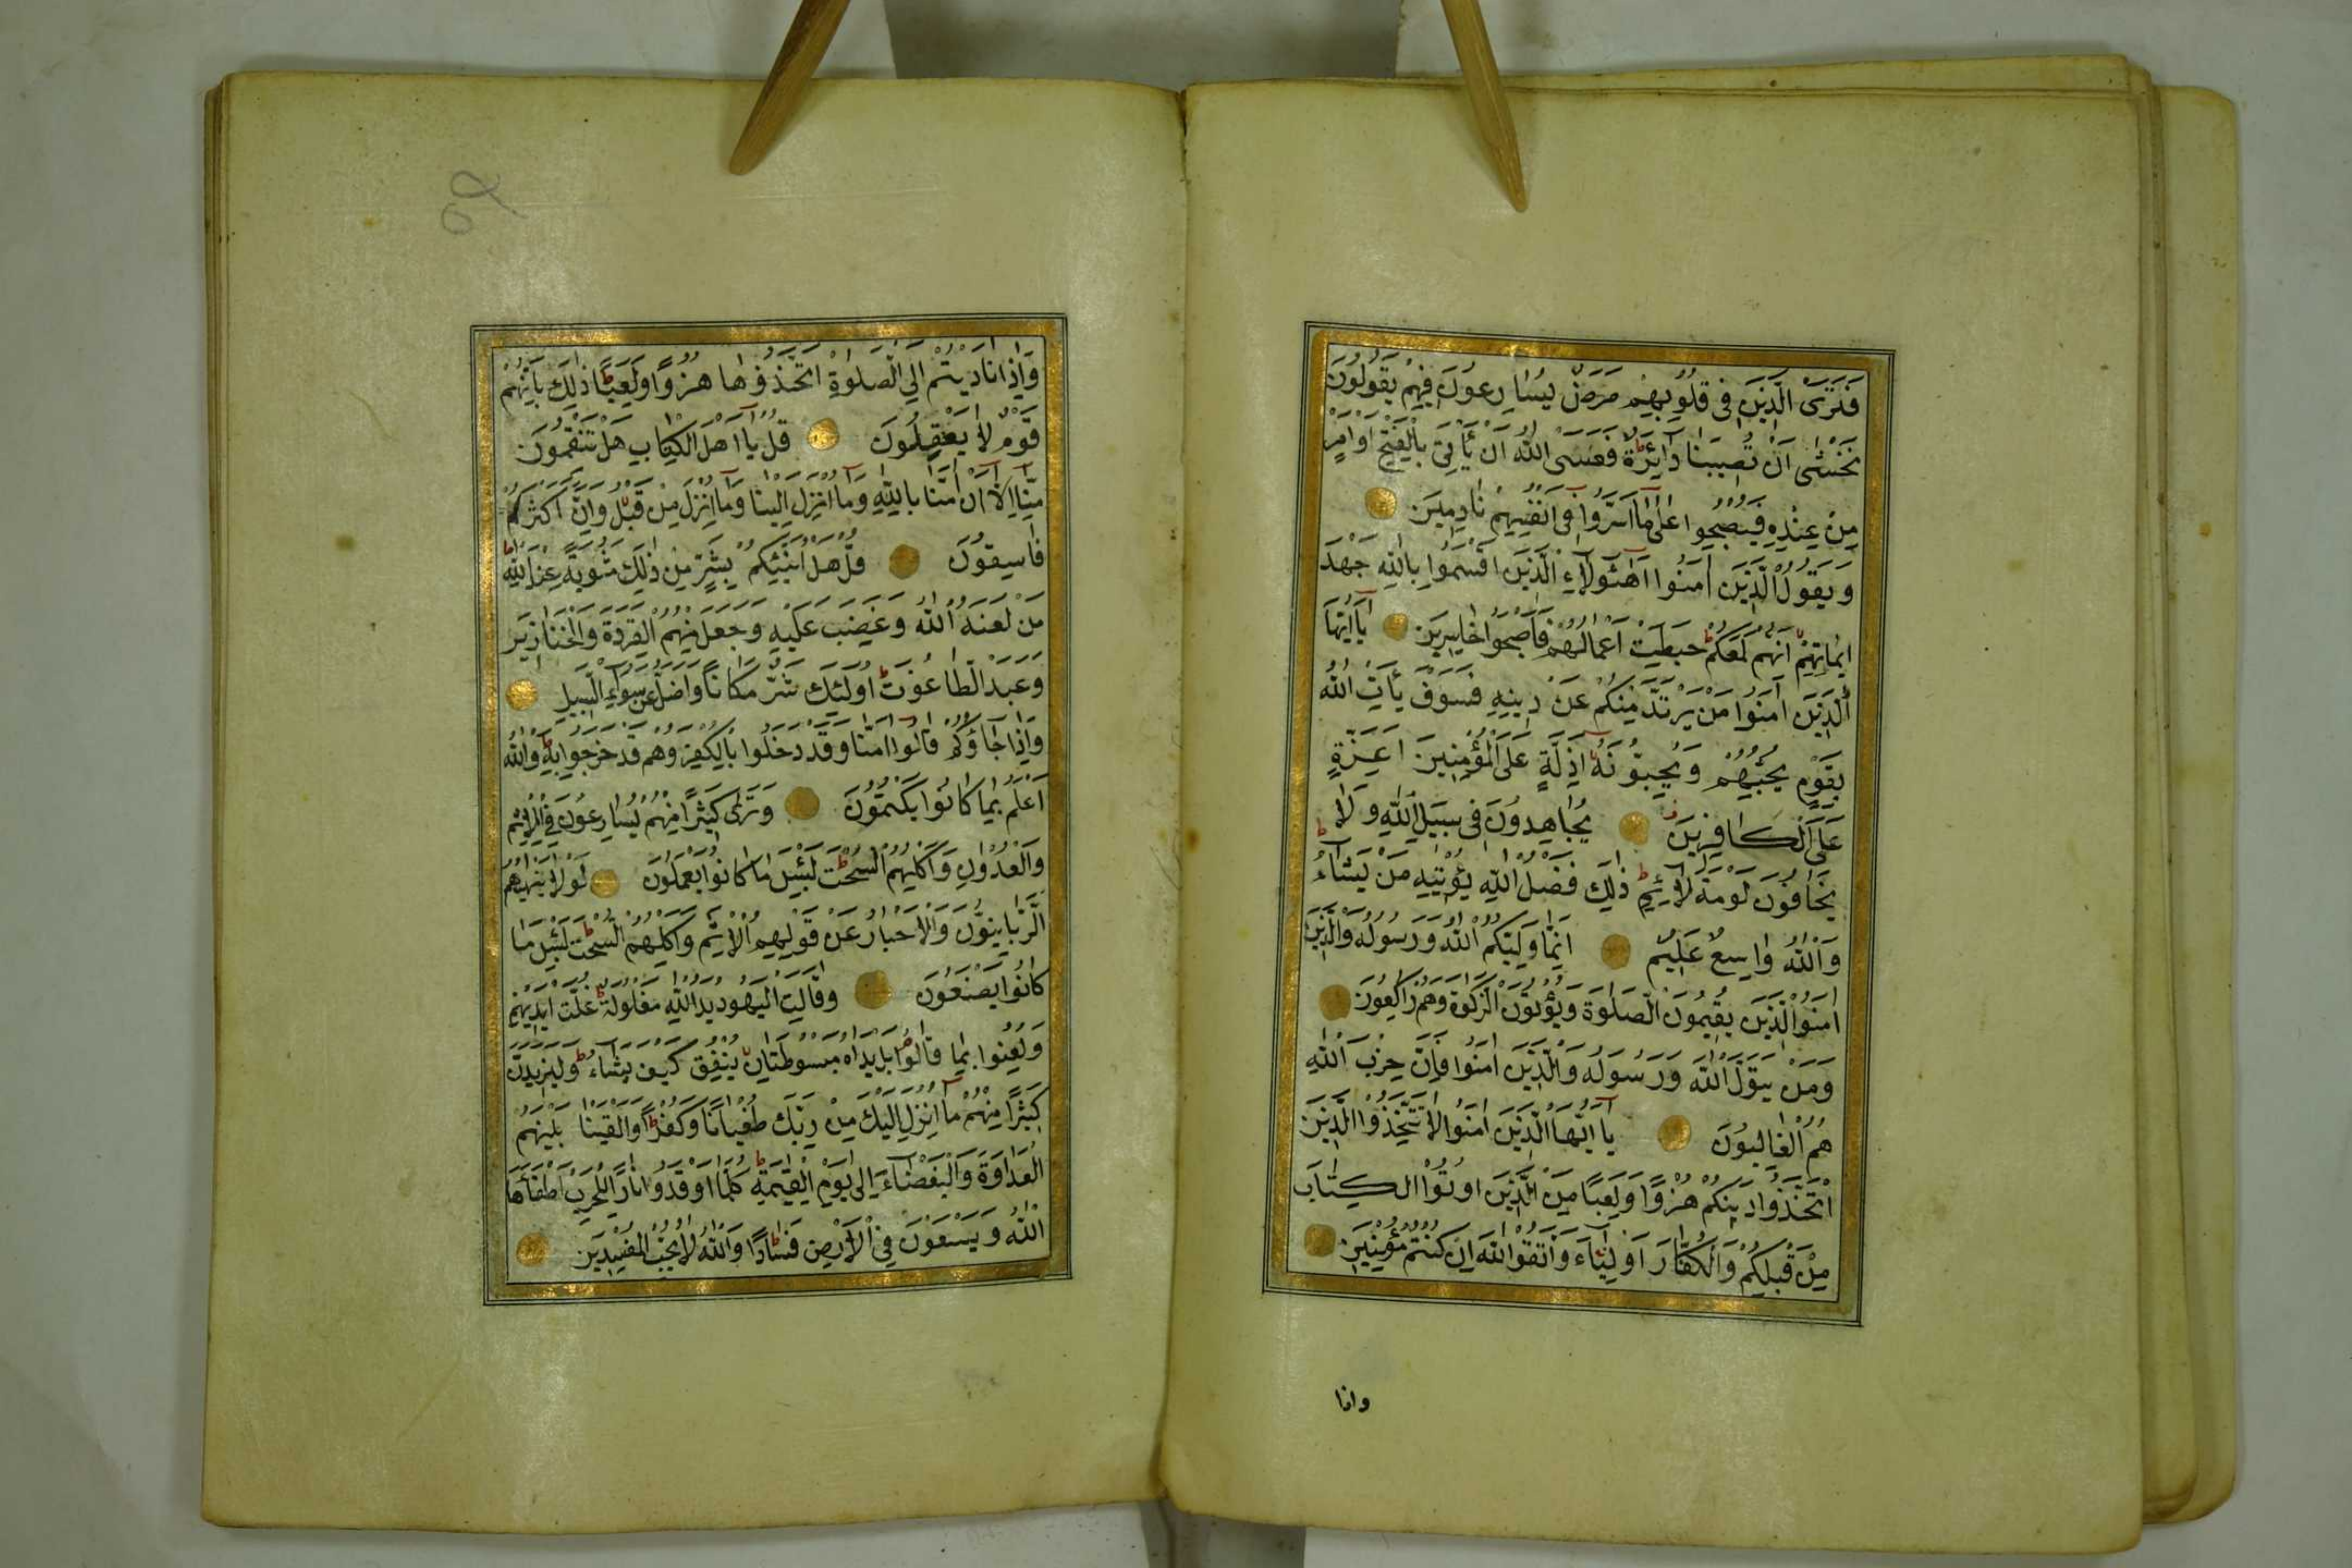 فَتَرَى الَّذِينَ فِى قُلُوبِهِمْ مَرَضٌ يُسَارِعُونَ فِيهِمْ يَقُولُونَ
نَخْشٰى اَنْ تُصِيبَنَا دَآئِرَةٌ فَعَسَى اللّٰهُ اَنْ يَأْتِىَ بِالْفَتْحِ اَوْ اَمْرٍ
مِنْ عِنْدِهِ فَيُصْبِحُوا عَلٰى مَا اَسَرُّوا فِى اَنْفُسِهِمْ نَادِمِينَ
وَيَقُولُ الَّذِينَ اٰمَنُوا اَهٰٓؤُلَآءِ الَّذِينَ اَقْسَمُوا بِاللّٰهِ جَهْدَ
اَيْمَانِهِمْ اِنَّهُمْ لَمَعَكُمْ حَبِطَتْ اَعْمَالُهُمْ فَاَصْبَحُوا خَاسِرِينَ يَآ اَيُّهَا
الَّذِينَ اٰمَنُوا مَنْ يَرْتَدَّ مِنْكُمْ عَنْ دِينِهِ فَسَوْفَ يَأْتِى اللّٰهُ
بِقَوْمٍ يُحِبُّهُمْ وَيُحِبُّونَهُ اَذِلَّةٍ عَلَى الْمُؤْمِنِينَ اَعِزَّةٍ
عَلَى الْكَافِرِينَ يُجَاهِدُونَ فِى سَبِيلِ اللّٰهِ وَلَا
يَخَافُونَ لَوْمَةَ لَآئِمٍ ذٰلِكَ فَضْلُ اللّٰهِ يُؤْتِيهِ مَنْ يَشَآءُ
وَاللّٰهُ وَاسِعٌ عَلِيمٌ اِنَّمَا وَلِيُّكُمُ اللّٰهُ وَرَسُولُهُ وَالَّذِينَ
اٰمَنُوا الَّذِينَ يُقِيمُونَ الصَّلٰوةَ وَيُؤْتُونَ الزَّكٰوةَ وَهُمْ رَاكِعُونَ
وَمَنْ يَتَوَلَّ اللّٰهَ وَرَسُولَهُ وَالَّذِينَ اٰمَنُوا فَاِنَّ حِزْبَ اللّٰهِ
هُمُ الْغَالِبُونَ يَآ اَيُّهَا الَّذِينَ اٰمَنُوا لَا تَتَّخِذُوا الَّذِينَ
اتَّخَذُوا دِينَكُمْ هُزُوًا وَلَعِبًا مِنَ الَّذِينَ اُوتُوا الْكِتَابَ
مِنْ قَبْلِكُمْ وَالْكُفَّارَ اَوْلِيَآءَ وَاتَّقُوا اللّٰهَ اِنْ كُنْتُمْ مُؤْمِنِينَ
واذا
وَاِذَا نَادَيْتُمْ اِلَى الصَّلٰوةِ اتَّخَذُوهَا هُزُوًا وَلَعِبًا ذٰلِكَ بِاَنَّهُمْ
قَوْمٌ لَا يَعْقِلُونَ قُلْ يَآ اَهْلَ الْكِتَابِ هَلْ تَنْقِمُونَ
مِنَّا اِلَّا اَنْ اٰمَنَّا بِاللّٰهِ وَمَا اُنْزِلَ اِلَيْنَا وَمَا اُنْزِلَ مِنْ قَبْلُ وَاَنَّ اَكْثَرَكُمْ
فَاسِقُونَ قُلْ هَلْ اُنَبِّئُكُمْ بِشَرٍّ مِنْ ذٰلِكَ مَثُوبَةً عِنْدَ اللّٰهِ
مَنْ لَعَنَهُ اللّٰهُ وَغَضِبَ عَلَيْهِ وَجَعَلَ مِنْهُمُ الْقِرَدَةَ وَالْخَنَازِيرَ
وَعَبَدَ الطَّاغُوتَ اُولٰئِكَ شَرٌّ مَكَانًا وَاَضَلُّ عَنْ سَوَآءِ السَّبِيلِ
وَاِذَا جَآؤُكُمْ قَالُوا اٰمَنَّا وَقَدْ دَخَلُوا بِالْكُفْرِ وَهُمْ قَدْ خَرَجُوا بِهِ وَاللّٰهُ
اَعْلَمُ بِمَا كَانُوا يَكْتُمُونَ وَتَرٰى كَثِيرًا مِنْهُمْ يُسَارِعُونَ فِى الْاِثْمِ
وَالْعُدْوَانِ وَاَكْلِهِمُ السُّحْتَ لَبِئْسَ مَا كَانُوا يَعْمَلُونَ لَوْلَا يَنْهٰيهُمُ
الرَّبَّانِيُّونَ وَالْاَحْبَارُ عَنْ قَوْلِهِمُ الْاِثْمَ وَاَكْلِهِمُ السُّحْتَ لَبِئْسَ مَا
كَانُوا يَصْنَعُونَ وَقَالَتِ الْيَهُودُ يَدُ اللّٰهِ مَغْلُولَةٌ غُلَّتْ اَيْدِيهِمْ
وَلُعِنُوا بِمَا قَالُوا بَلْ يَدَاهُ مَبْسُوطَتَانِ يُنْفِقُ كَيْفَ يَشَآءُ وَلَيَزِيدَنَّ
كَثِيرًا مِنْهُمْ مَآ اُنْزِلَ اِلَيْكَ مِنْ رَبِّكَ طُغْيَانًا وَكُفْرًا وَاَلْقَيْنَا بَيْنَهُمُ
الْعَدَاوَةَ وَالْبَغْضَآءَ اِلٰى يَوْمِ الْقِيٰمَةِ كُلَّمَا اَوْقَدُوا نَارًا لِلْحَرْبِ اَطْفَأَهَا
اللّٰهُ وَيَسْعَوْنَ فِى الْاَرْضِ فَسَادًا وَاللّٰهُ لَا يُحِبُّ الْمُفْسِدِينَ